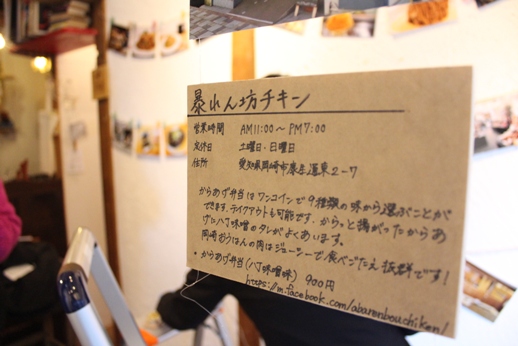 暴れん坊チキン
営業時間 AM11:00〜PM7:00
定休日 土曜日・日曜日
住所 愛知県岡崎市康生通東2-7
からあげ弁当はワンコインで9種類の味から選ぶことが
できます。テイクアウトも可能です。からっと揚がったからあ
げに八丁味噌のタレがよくあいます。
岡崎おうはんの肉はジューシーで食べごたえ抜群です！
・からあげ弁当(八丁味噌味) 900円
https://m.facebook.com/abarenbouchiken/